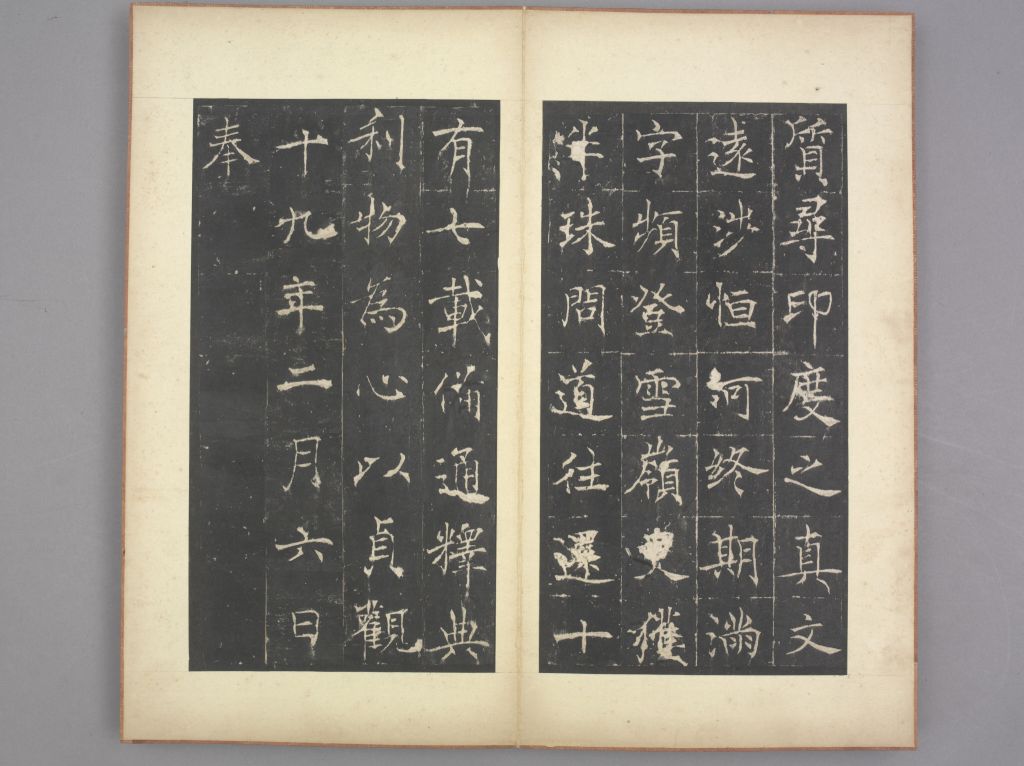 質尋印度之真文
遠涉恒河終期滿
字頻登雪嶺更獲
半珠問道往還十
有七載備通釋典
利物為心以貞觀
十九年二月六日
奉